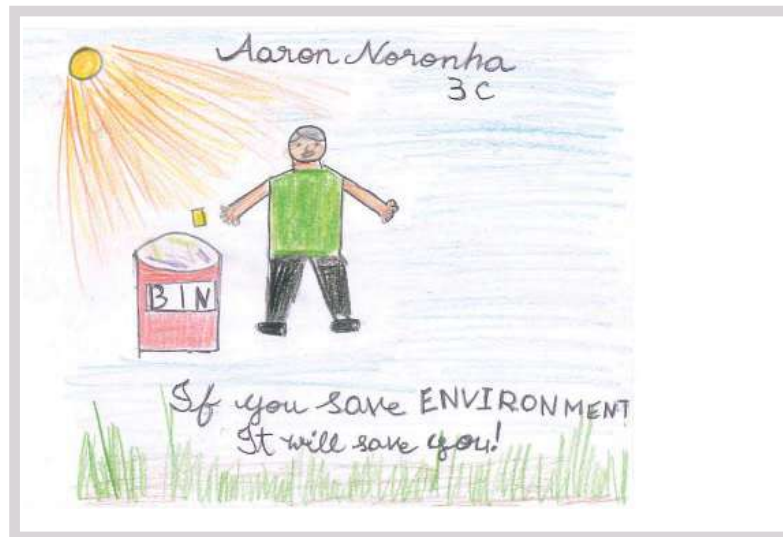 Aaron Noronha
3 C
BIN
If you save ENVIRONMENT
It will save you!